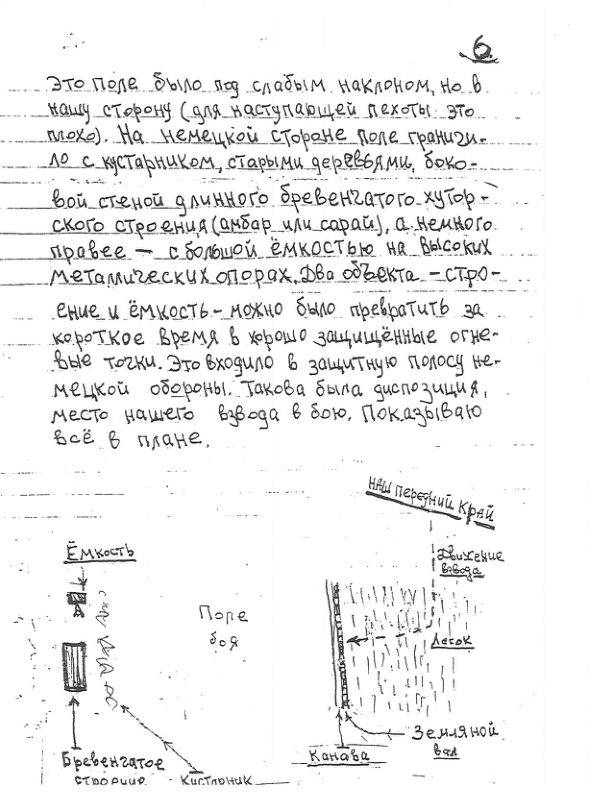 6.
Это поле было под слабым наклоном, но в
нашу сторону (для наступающей пехоты это
плохо). На немецкой стороне поле граничи-
ло с кустарником, старыми деревьями, боко-
вой стеной длинного бревенчатого хутор-
ского строения (амбар или сарай), а немного
правее – с большой ёмкостью на высоких
металлических опорах. Два объекта – стро-
ение и ёмкость – можно было превратить за
короткое время в хорошо защищённые огне-
вые точки. Это входило в защитную полосу не-
мецкой обороны. Такова была диспозиция,
место нашего взвода в бою. Показываю
всё в плане.
наш передний край
Ёмкость
Движение
взвода
Поле
боя
Лесок
Земляной
вал
Канава
Бревенчатое
строение
Кустарник